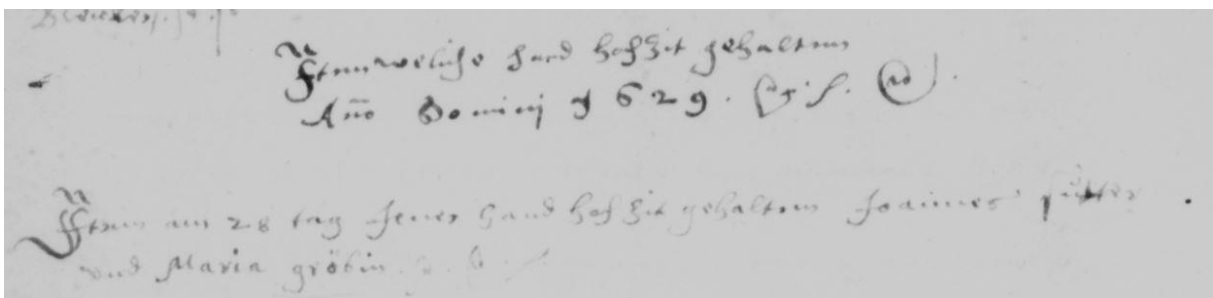 Item weliche hand hochzit gehaltenn
Anno Dominj 1629.
Item am 28 tag Jener hand hochzit gehaltenn Joannes sutter
vnd Maria gröbin